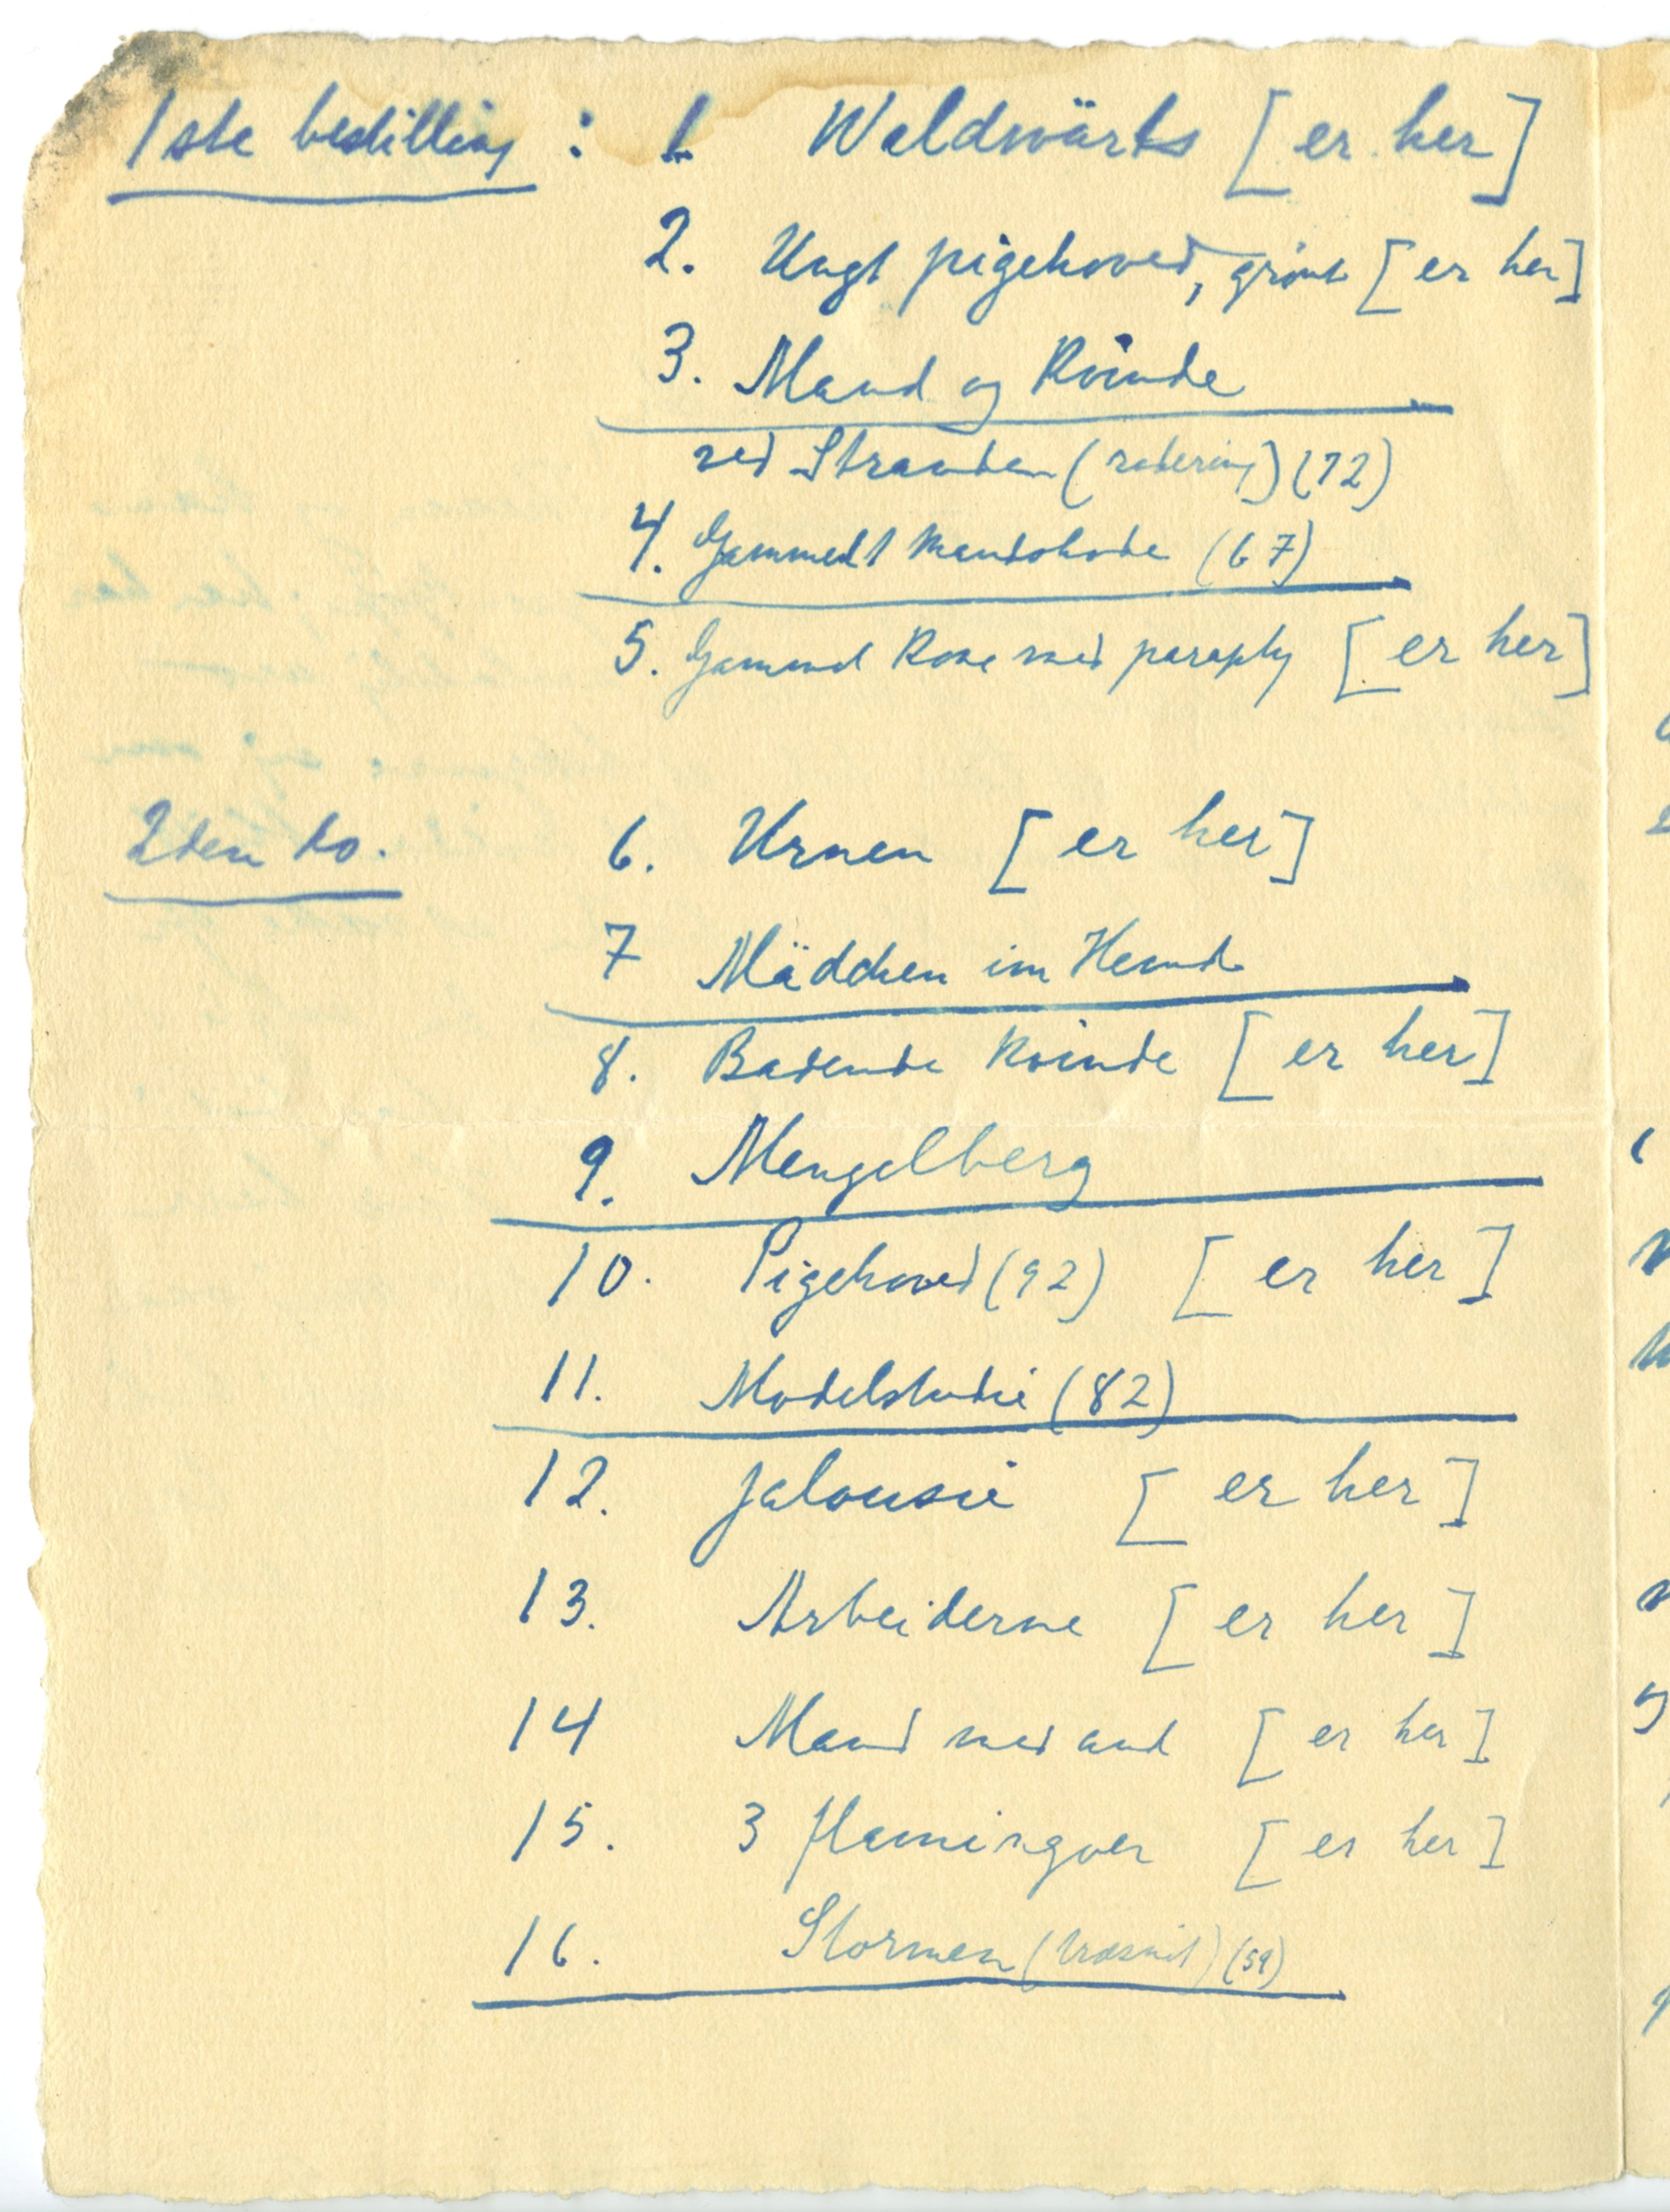 1ste bestilling : 1 Waldwärts [er her]
2. Ungt pigehoved, grønt [er her]
3. Mand og Kvinde
ved Stranden (radering) (72)
4. Gammelt Mandshode (67)
5. Gammel Kone med paraply [er her]
2den do. 6. Urnen [er her]
7 Mädchen im Hemd
8. Badende Kvinde [er her]
9. Mengelberg
10. Pigehoved (92) [er her]
11. Modelstudie (82)
12. Jalousie [er her]
13. Arbeiderne [er her]
14 Mand med and [er her]
15. 3 flamingoer [er her]
16. Stormen (træsnit) (59)